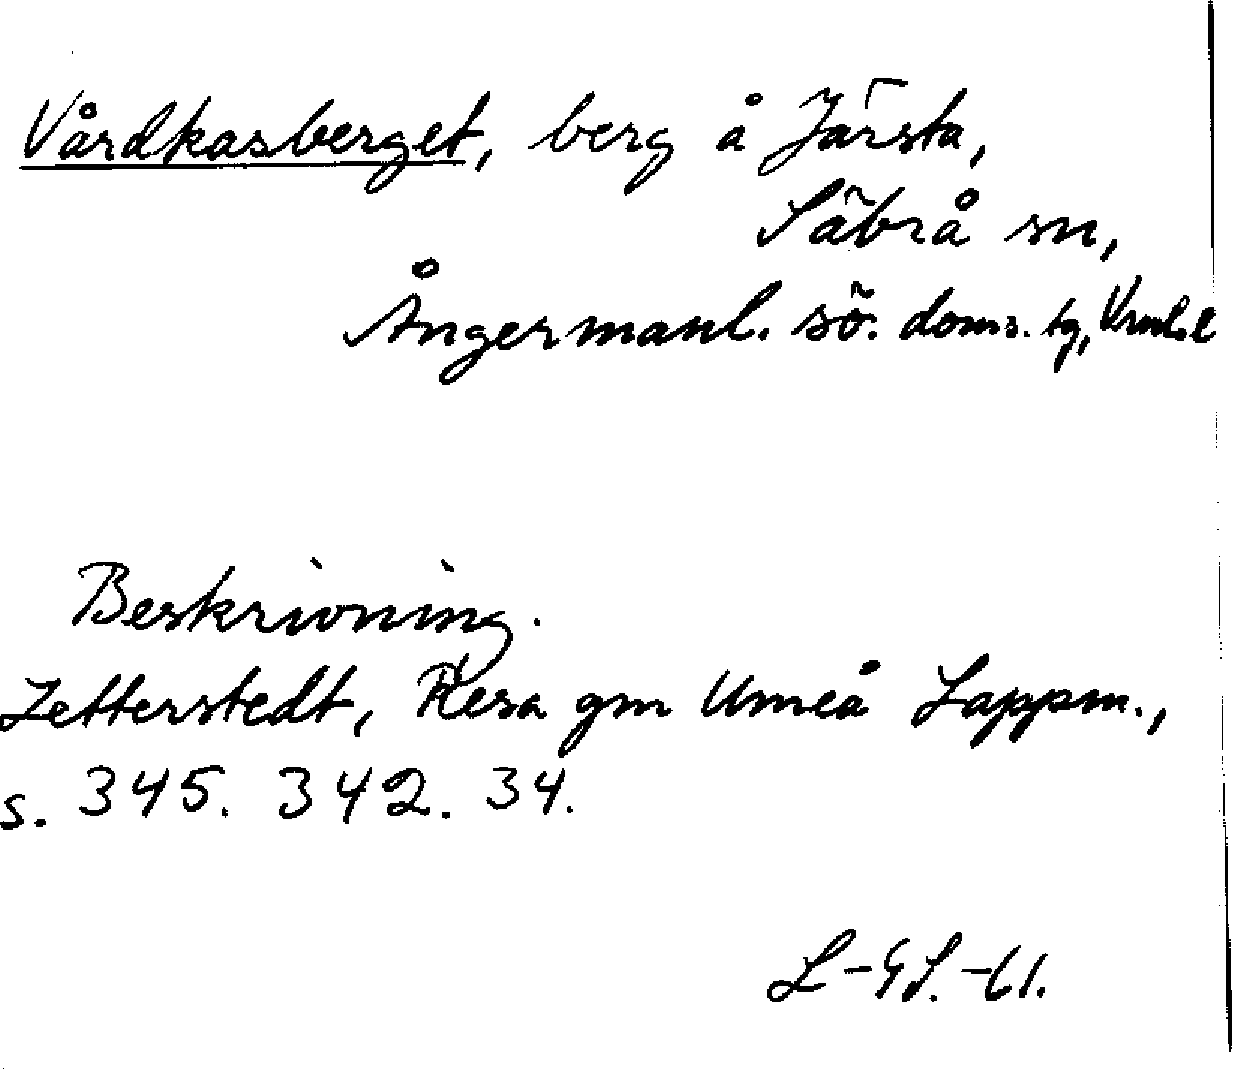 Vårdkasberget, berg å Järsta,
Säbrå sn,
Ångermanl. sö. doms. tg,
Beskrivning.
Zetterstedt, Resa gm Umeå Lappm.,
s. 345. 342. 34.
L-GL.-61.